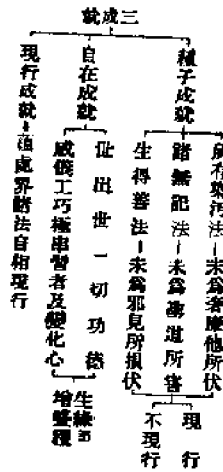 三成就
種子成就
所有染污法—未爲奢摩他所伏
諸無記法—未爲聖道所害
生得善法—未爲邪見所損伏
現行
不現行
自在成就
世出世一切功德
威儀工巧極串習者及變化心
生緣
增盛種
現行成就—蘊處界諸法自相現行